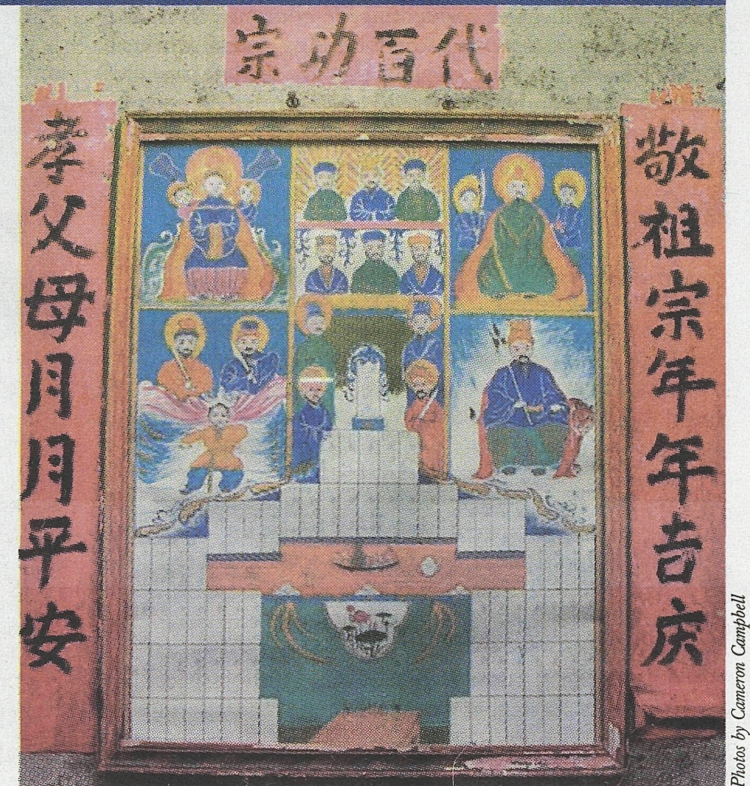 宗功百代
敬祖宗年年吉庆
孝父母月月平安
Photos by Cameron Campbell